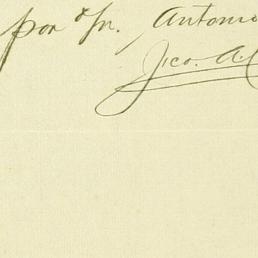 por Sr. Antonio
Fco. A.